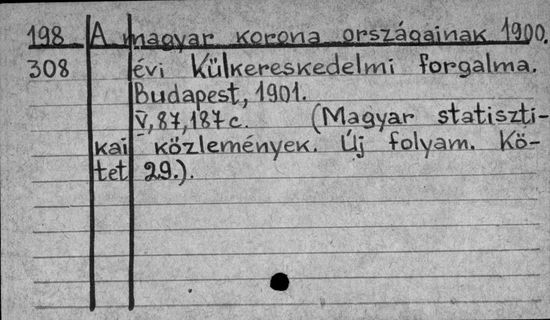 198 A magyar korona országainak 1900.
308 évi Külkereskedelmi forgalma.
Budapest, 1901.
V, 87, 187 c. (Magyar statiszti-
kai közlemények. Új folyam. Kö-
tet 29.).